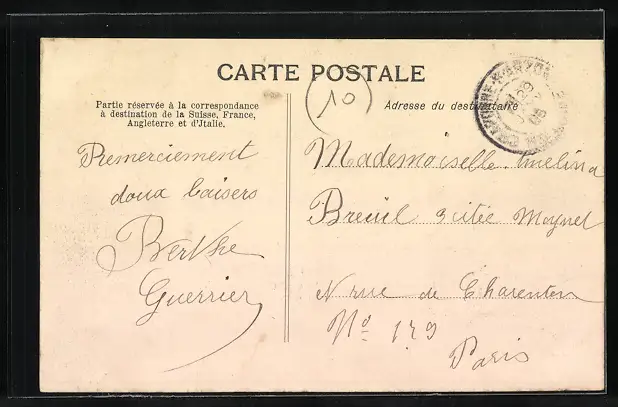 CARTE POSTALE
Partie réservée à la correspondance
à destination de la Suisse, France,
Angleterre et d'Italie.
10
Adresse du destinataire
Remerciement
doux baisers
Berthe
Guerrier
Mademoiselle
Breuil 3 citée Moynet
N rue de Charenton
No 179
Paris